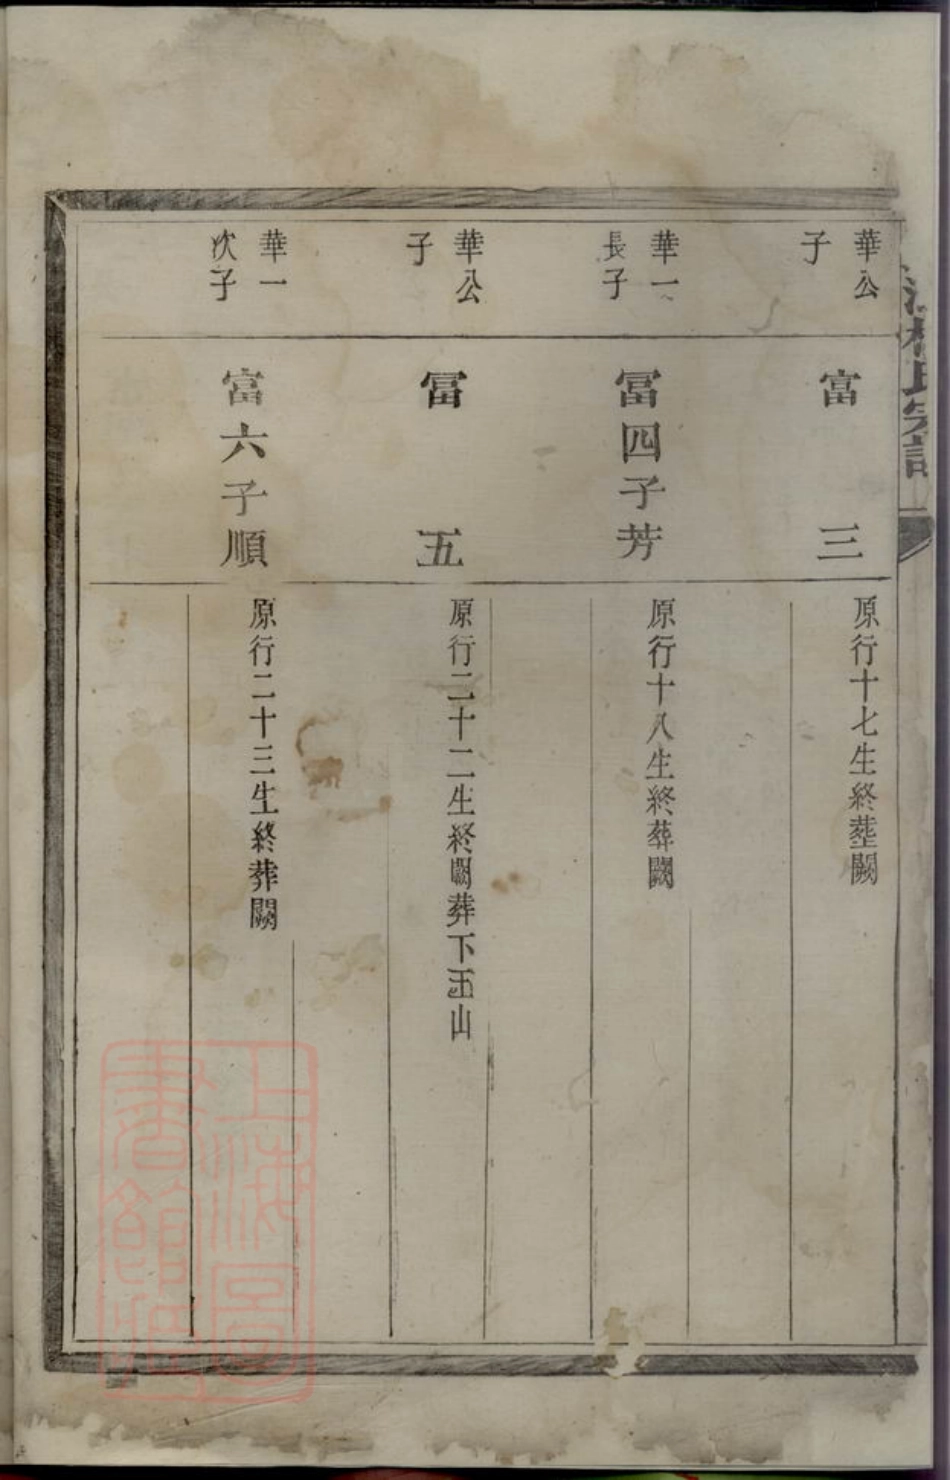 華公
子
富三
原行十七生終塟闕
華一
長子
冨四子芳
原行十八生終葬闕
華公
子
冨五
原行二十二生終闕葬下玉山
華一
次子
富六子順
原行二十三生終葬闕
上海圖
書館藏